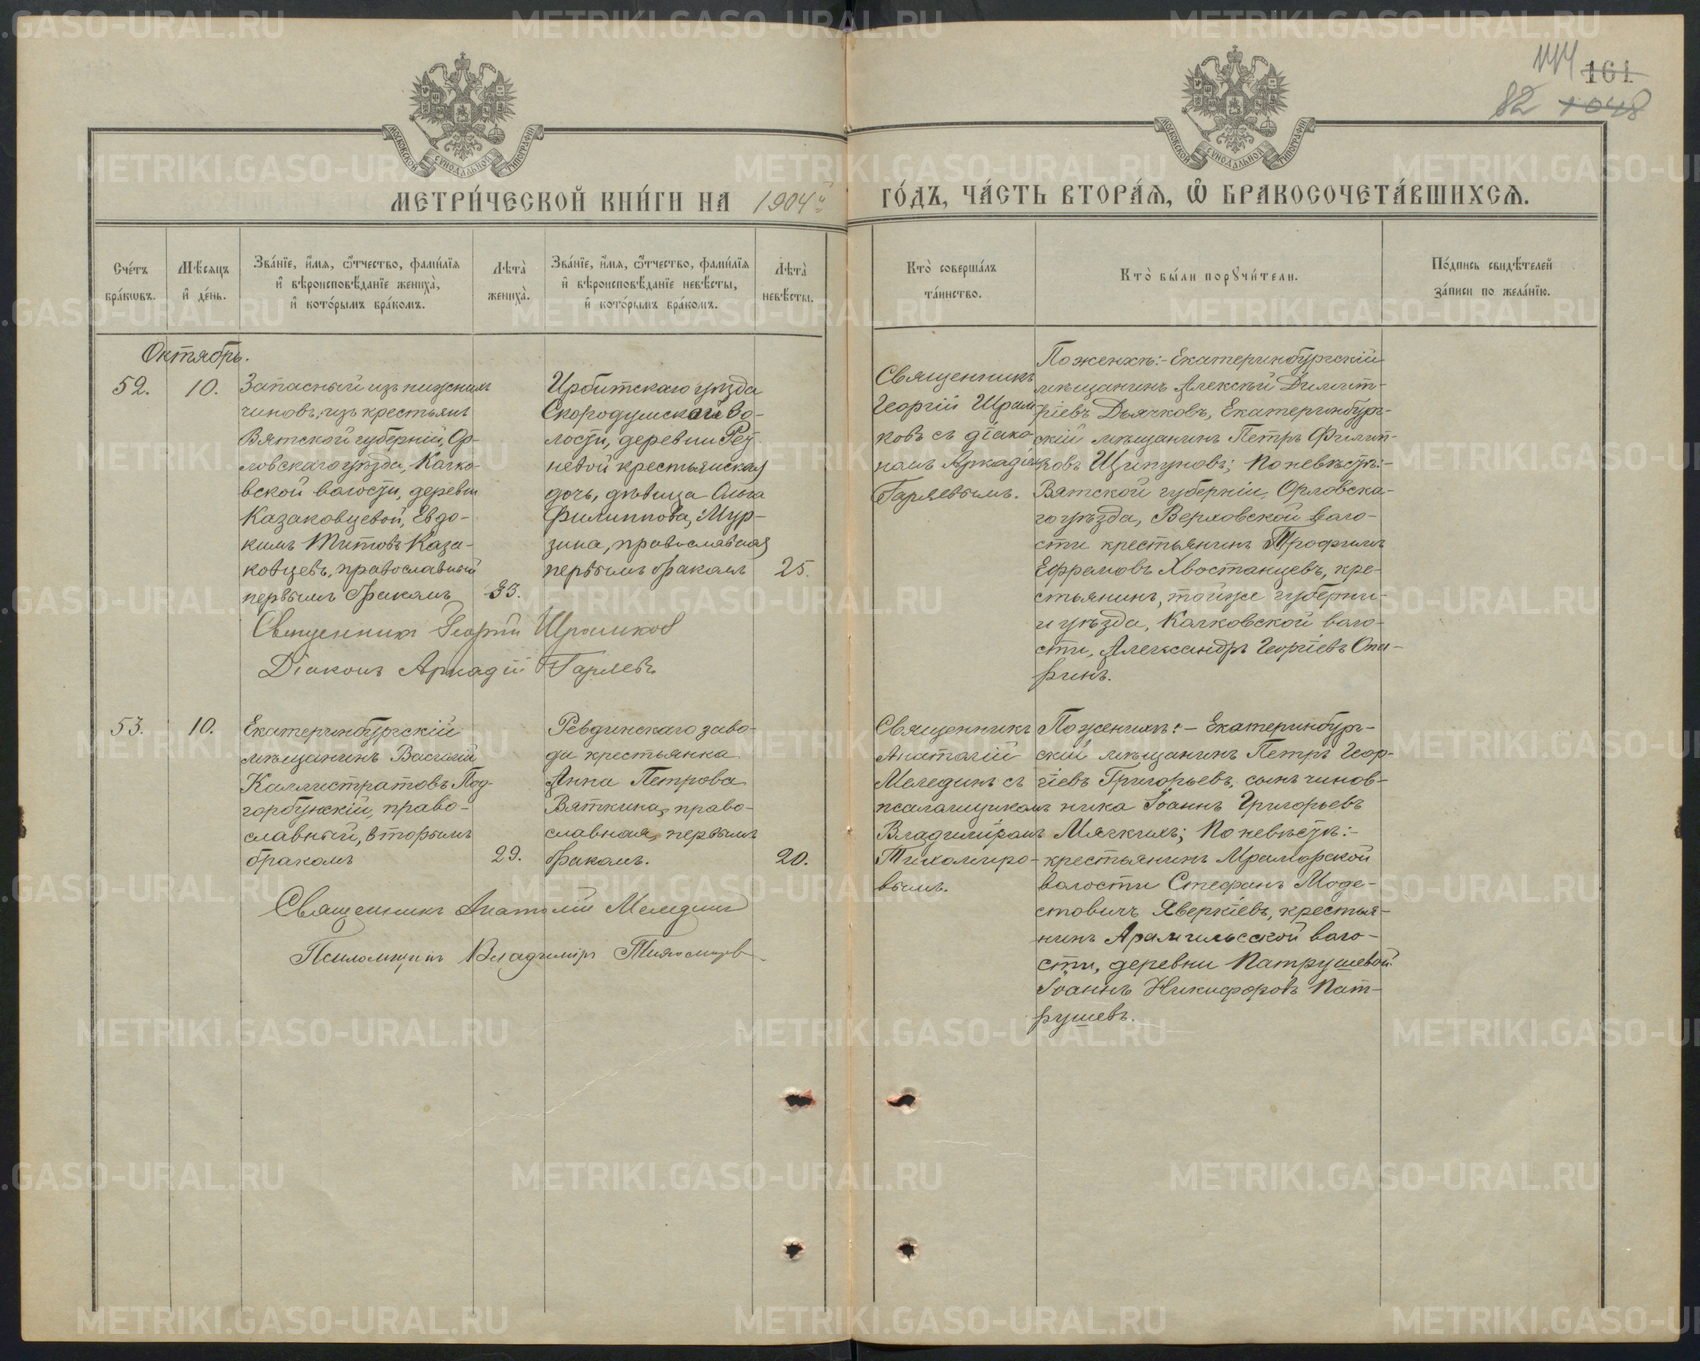 144 161
82 1048
МЕТРИ́ЧЕСКОЙ КНИ́ГИ НА 1904й ГО́ДЪ, ЧА́СТЬ ВТОРА́Я, Ѡ҆ БРАКОСОЧЕТА́ВШИХСЯ.
Сче́тъ
бра́кѡвъ.
Мѣ́сяцъ
и҆ де́нь.
Зва́нїе, и҆́мя, ѻ҆́тчество, фами́лїя
и҆ вѣроисповѣ́данїе жениха̀,
и҆ кото́рымъ бра́комъ.
Лѣта̀
жениха̀.
Зва́нїе, и҆́мя, ѻ҆́тчество, фами́лїя
и҆ вѣроисповѣ́данїе невѣ́сты,
и҆ кото́рымъ бра́комъ.
Лѣта̀
невѣ́сты.
Кто̀ соверша́лъ
та́инство.
Кто̀ бы́ли порꙋчи́тели.
По́дпись свидѣ́телей
за́писи по жела́нїю.
Октябрь.
52.
10.
Запасный изъ нижнихъ
чиновъ, изъ крестьянъ
Вятской губерніи, Ор-
ловскаго уѣзда, Калко-
вской волости, деревни
Казаковцевой, Евдо-
кимъ Титовъ Каза-
ковцевъ, православный
первымъ бракомъ
33.
Ирбитскаго уѣзда
Скородумской во-
лости, деревни Реу-
невой крестьянская
дочь, дѣвица Ольга
Филиппова, Мур-
зина, православная
первымъ бракомъ
25.
Священникъ
Георгій Шрам-
ковъ съ діако-
номъ Аркадіемъ
Гаряевымъ.
По женихѣ:- Екатеринбургскій
мѣщанинъ Алексѣй Димит-
ріевъ Дьячковъ, Екатеринбург-
скій мѣщанинъ Петръ Филип-
повъ Щипуновъ; По невѣстѣ:-
Вятской губерніи, Орловска-
го уѣзда, Верховской воло-
сти крестьянинъ Трофимъ
Ефремовъ Хвостанцевъ, кре-
стьянинъ, той же губерніи
и уѣзда, Калковской воло-
сти, Александръ Георгіевъ Опа-
ринъ.
Священникъ Георгій Шрамковъ
Діаконъ Аркадій Гаряевъ
53.
10.
Екатеринбургскій
мѣщанинъ Василій
Каллистратовъ Под-
горбунскій, право-
славный, вторымъ
бракомъ
29.
Ревдинскаго заво-
да крестьянка
Анна Петрова
Вяткина, право-
славная, первымъ
бракомъ.
20.
Священникъ
Анатолій
Мелединъ съ
псаломщикомъ
Владиміромъ
Тихомиро-
вымъ.
По женихѣ:- Екатеринбург-
скій мѣщанинъ Петръ Геор-
гіевъ Григорьевъ, сынъ чинов-
ника Іоаннъ Григорьевъ
Мягкихъ; По невѣстѣ:-
крестьянинъ Мраморской
волости Стефанъ Моде-
стовичъ Аверкіевъ, крестья-
нинъ Арамильсской воло-
сти, деревни Патрушевой
Іоаннъ Никифоровъ Пат-
рушевъ.
Священникъ Анатолій Меледин
Псаломщикъ Владиміръ Тихомиров.
METRIKI.GASO-URAL.RU